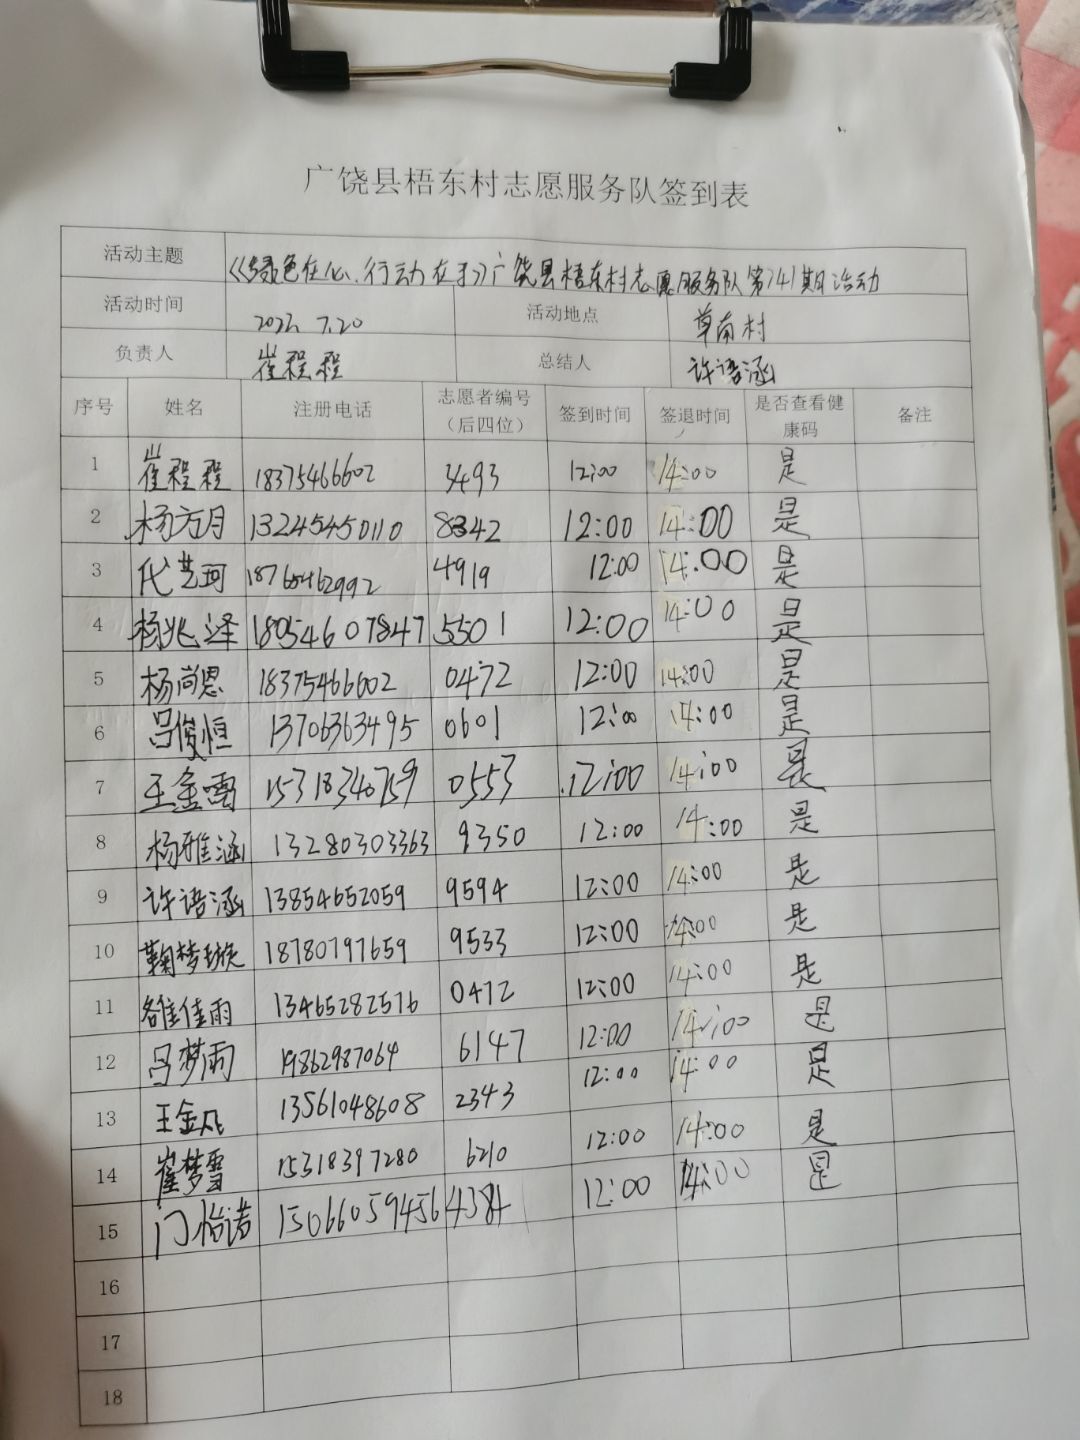 广饶县梧东村志愿服务队签到表
活动主题 《绿色在心.行动在于》广饶县梧东村志愿服务队第741期活动
活动时间 2022 7.20 活动地点 草南村
负责人 崔程程 总结人 许语涵
序号 姓名 注册电话 志愿者编号（后四位） 签到时间 签退时间 是否查看健康码 备注
1 崔程程 18375466602 3493 12:00 14:00 是
2 杨方月 13245450110 8342 12:00 14:00 是
3 代艺珂 18765462992 4919 12:00 14:00 是
4 杨兆泽 18054607847 5501 12:00 14:00 是
5 杨尚恩 18375466602 0472 12:00 14:00 是
6 吕俊恒 13706363495 0601 12:00 14:00 是
7 王金 15318340759 0553 12:00 14:00 是
8 杨雅涵 13280303363 9350 12:00 14:00 是
9 许语涵 13854652059 9594 12:00 14:00 是
10 鞠梦璇 18780797659 9533 12:00 14:00 是
11 佳雨 13465282576 0472 12:00 14:00 是
12 吕梦雨 19862987064 6147 12:00 14:00 是
13 王金凡 13561048608 2343 12:00 14:00 是
14 崔梦雪 15318397280 6210 12:00 14:00 是
15 门怡诺 15066059456 4384 12:00 14:00 是
16
17
18